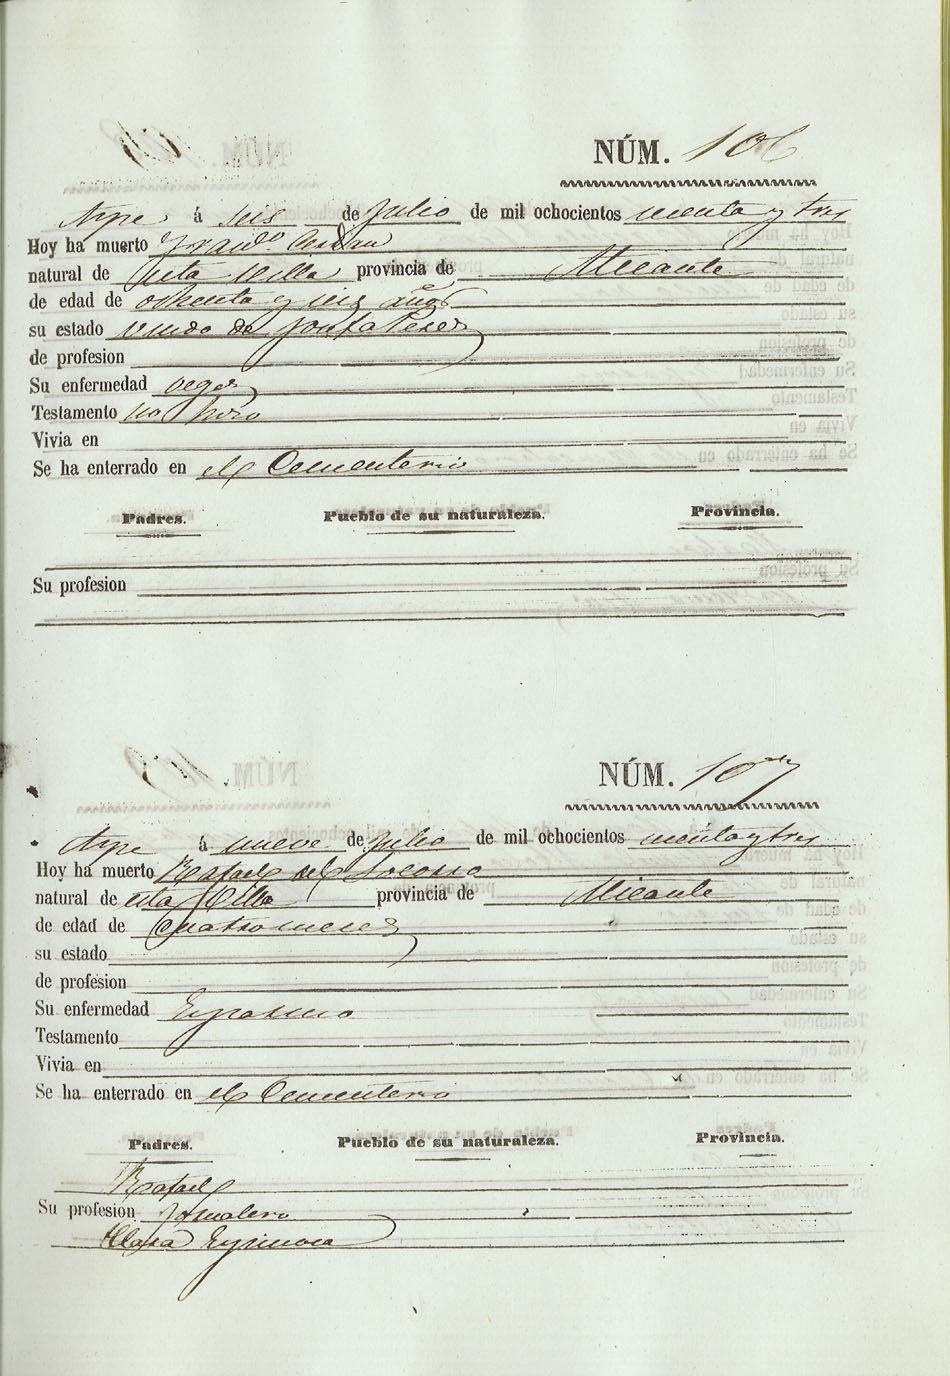 NÚM. 106
Aspe á seis de Julio de mil ochocientos sesenta y tres
Hoy ha muerto Fran.co
natural de esta Villa provincia de Alicante
de edad de ochenta y seis años
su estado viudo de Josefa Perez
de profesion
Su enfermedad vegez
Testamento no hizo
Vivia en
Se ha enterrado en el Cementerio
Padres. Pueblo de su naturaleza. Provincia.
Su profesion
NÚM. 107
Aspe á nueve de Julio de mil ochocientos sesenta y tres
Hoy ha muerto Rafael del Socorro
natural de esta Villa provincia de Alicante
de edad de Cuatro meses
su estado
de profesion
Su enfermedad
Testamento
Vivia en
Se ha enterrado en el Cementerio
Padres. Pueblo de su naturaleza. Provincia.
Rafael
Su profesion Jornalero
Clara Espinosa